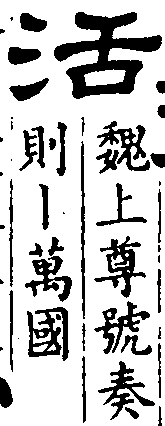 活
魏上尊號奏
則丨萬國